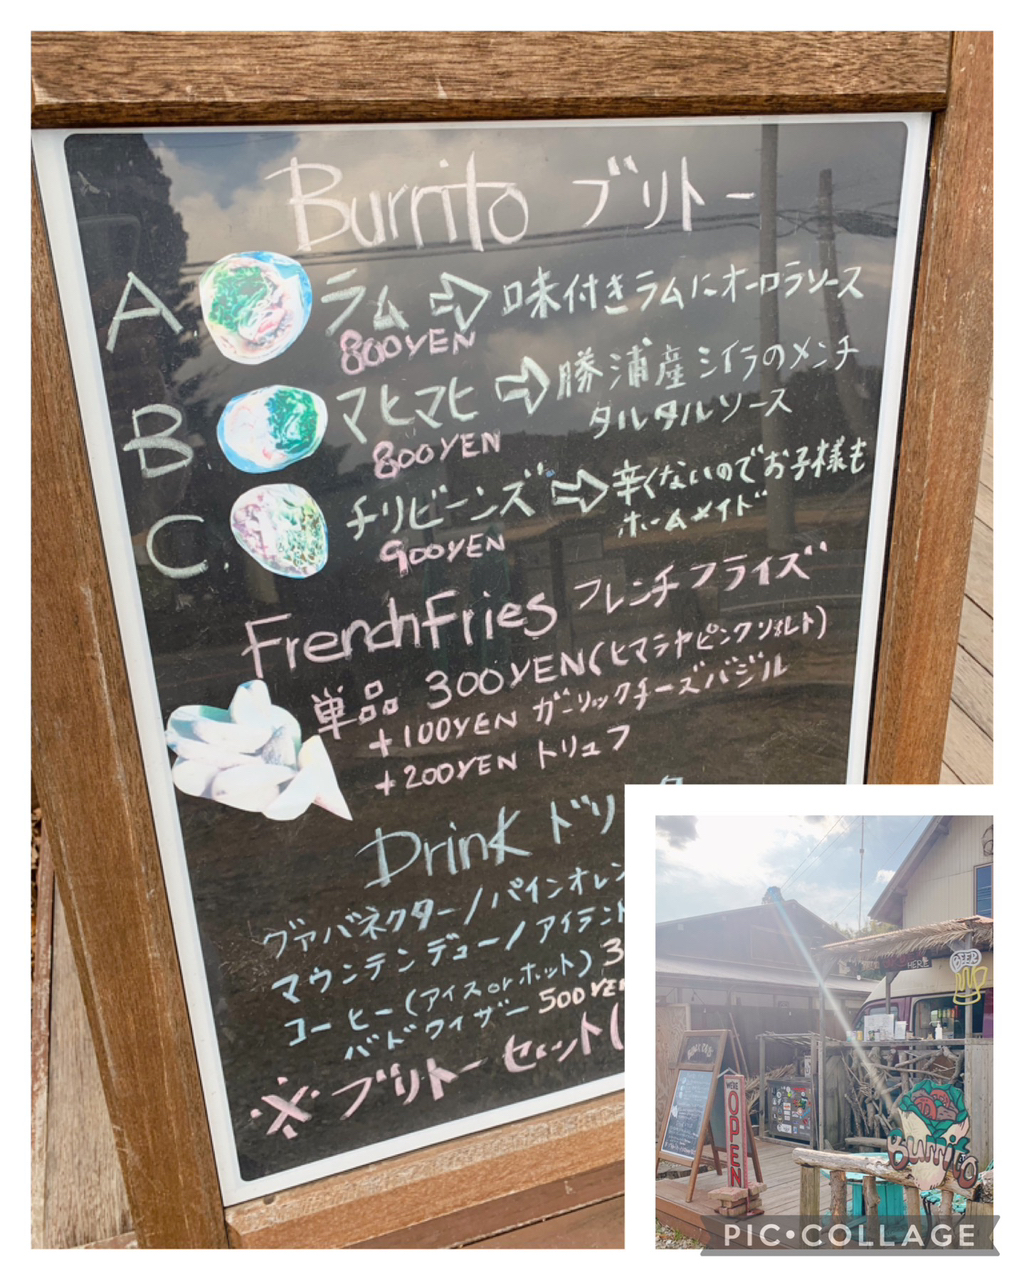 Burrito ブリトー
A ラム ⇨ 味付きラムにオーロラソース
800YEN
B. マヒマヒ ⇨ 勝浦産シイラのメンチ
タルタルソース
800YEN
C. チリビーンズ ⇨ 辛くないのでお子様も
ホームメイド
900YEN
FrenchFries フレンチフライズ
単品 300YEN(ヒマラヤピンクソルト)
+100YEN ガーリックチーズバジル
+200YEN トリュフ
Drink ドリ
グァバネクター/パインオレン
マウンテンデュー/アイテント
コーヒー(アイス or ホット) 3
バドワイザー 500YEN
※ブリトーセット(
BEER
HERE
WE'RE
OPEN
Burrito
PIC•COLLAGE